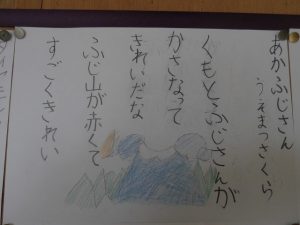 あかふじさん
うえまつさくら
くもとふじさんが
かさなって
きれいだな
ふじ山が赤くて
すごくきれい